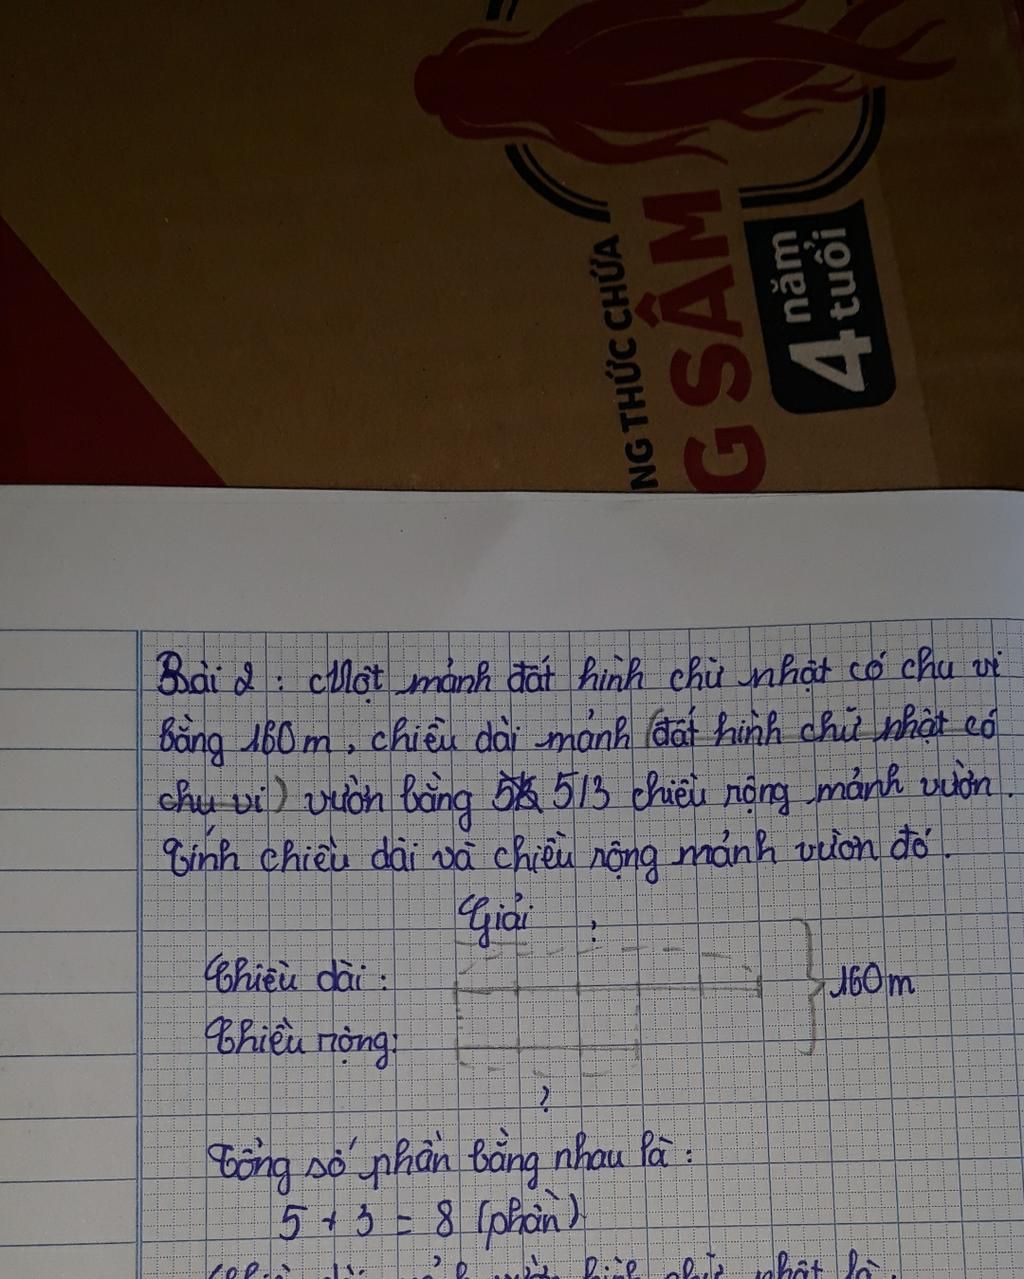 NG THỨC CHỨA
G SÂM
4 năm
tuổi
Bài 2 : Một mảnh đất hình chữ nhật có chu vi
bằng 160m, chiều dài mảnh (đất hình chữ nhật có
chu vi) vườn bằng 5/3 chiều rộng mảnh vườn.
Tính chiều dài và chiều rộng mảnh vườn đó.
Giải
?
Chiều dài :
160m
Chiều rộng:
?
Tổng số phần bằng nhau là :
5 + 3 = 8 (phần)